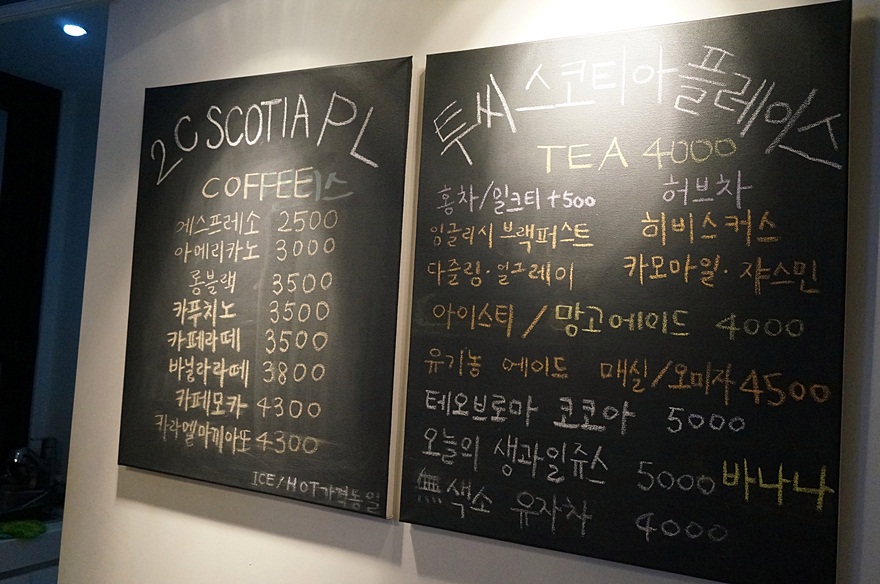 2C SCOTIA PL
COFFEE
에스프레소 2500
아메리카노 3000
롱블랙 3500
카푸치노 3500
카페라떼 3500
바닐라라떼 3800
카페모카 4300
카라멜마끼아또 4300
ICE/HOT가격동일
투씨스코티아플레이스
TEA 4000
홍차/밀크티+500 허브차
잉글리시 브랙퍼스트 히비스커스
다즐링·얼그레이 카모마일·쟈스민
아이스티/망고에이드 4000
유기농 에이드 매실/오미자4500
테오브로마 코코아 5000
오늘의 생과일쥬스 5000 바나나
無색소 유자차 4000